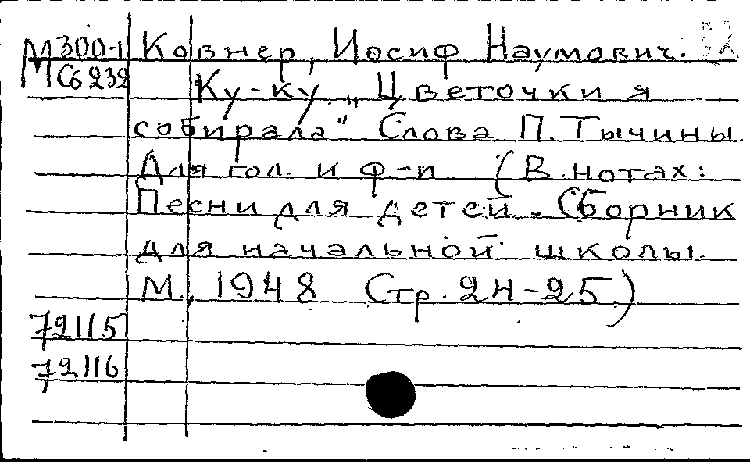 М300-1 Ковнер, Иосиф Наумович.
МСб232
Ку-ку. „Цветочки я
собирала" Слова П. Тычины.
Для гол. и ф-п (В нотах:
Песни для детей. Сборник
для начальной школы.
М., 1948 Стр. 24-25)
72115
72116